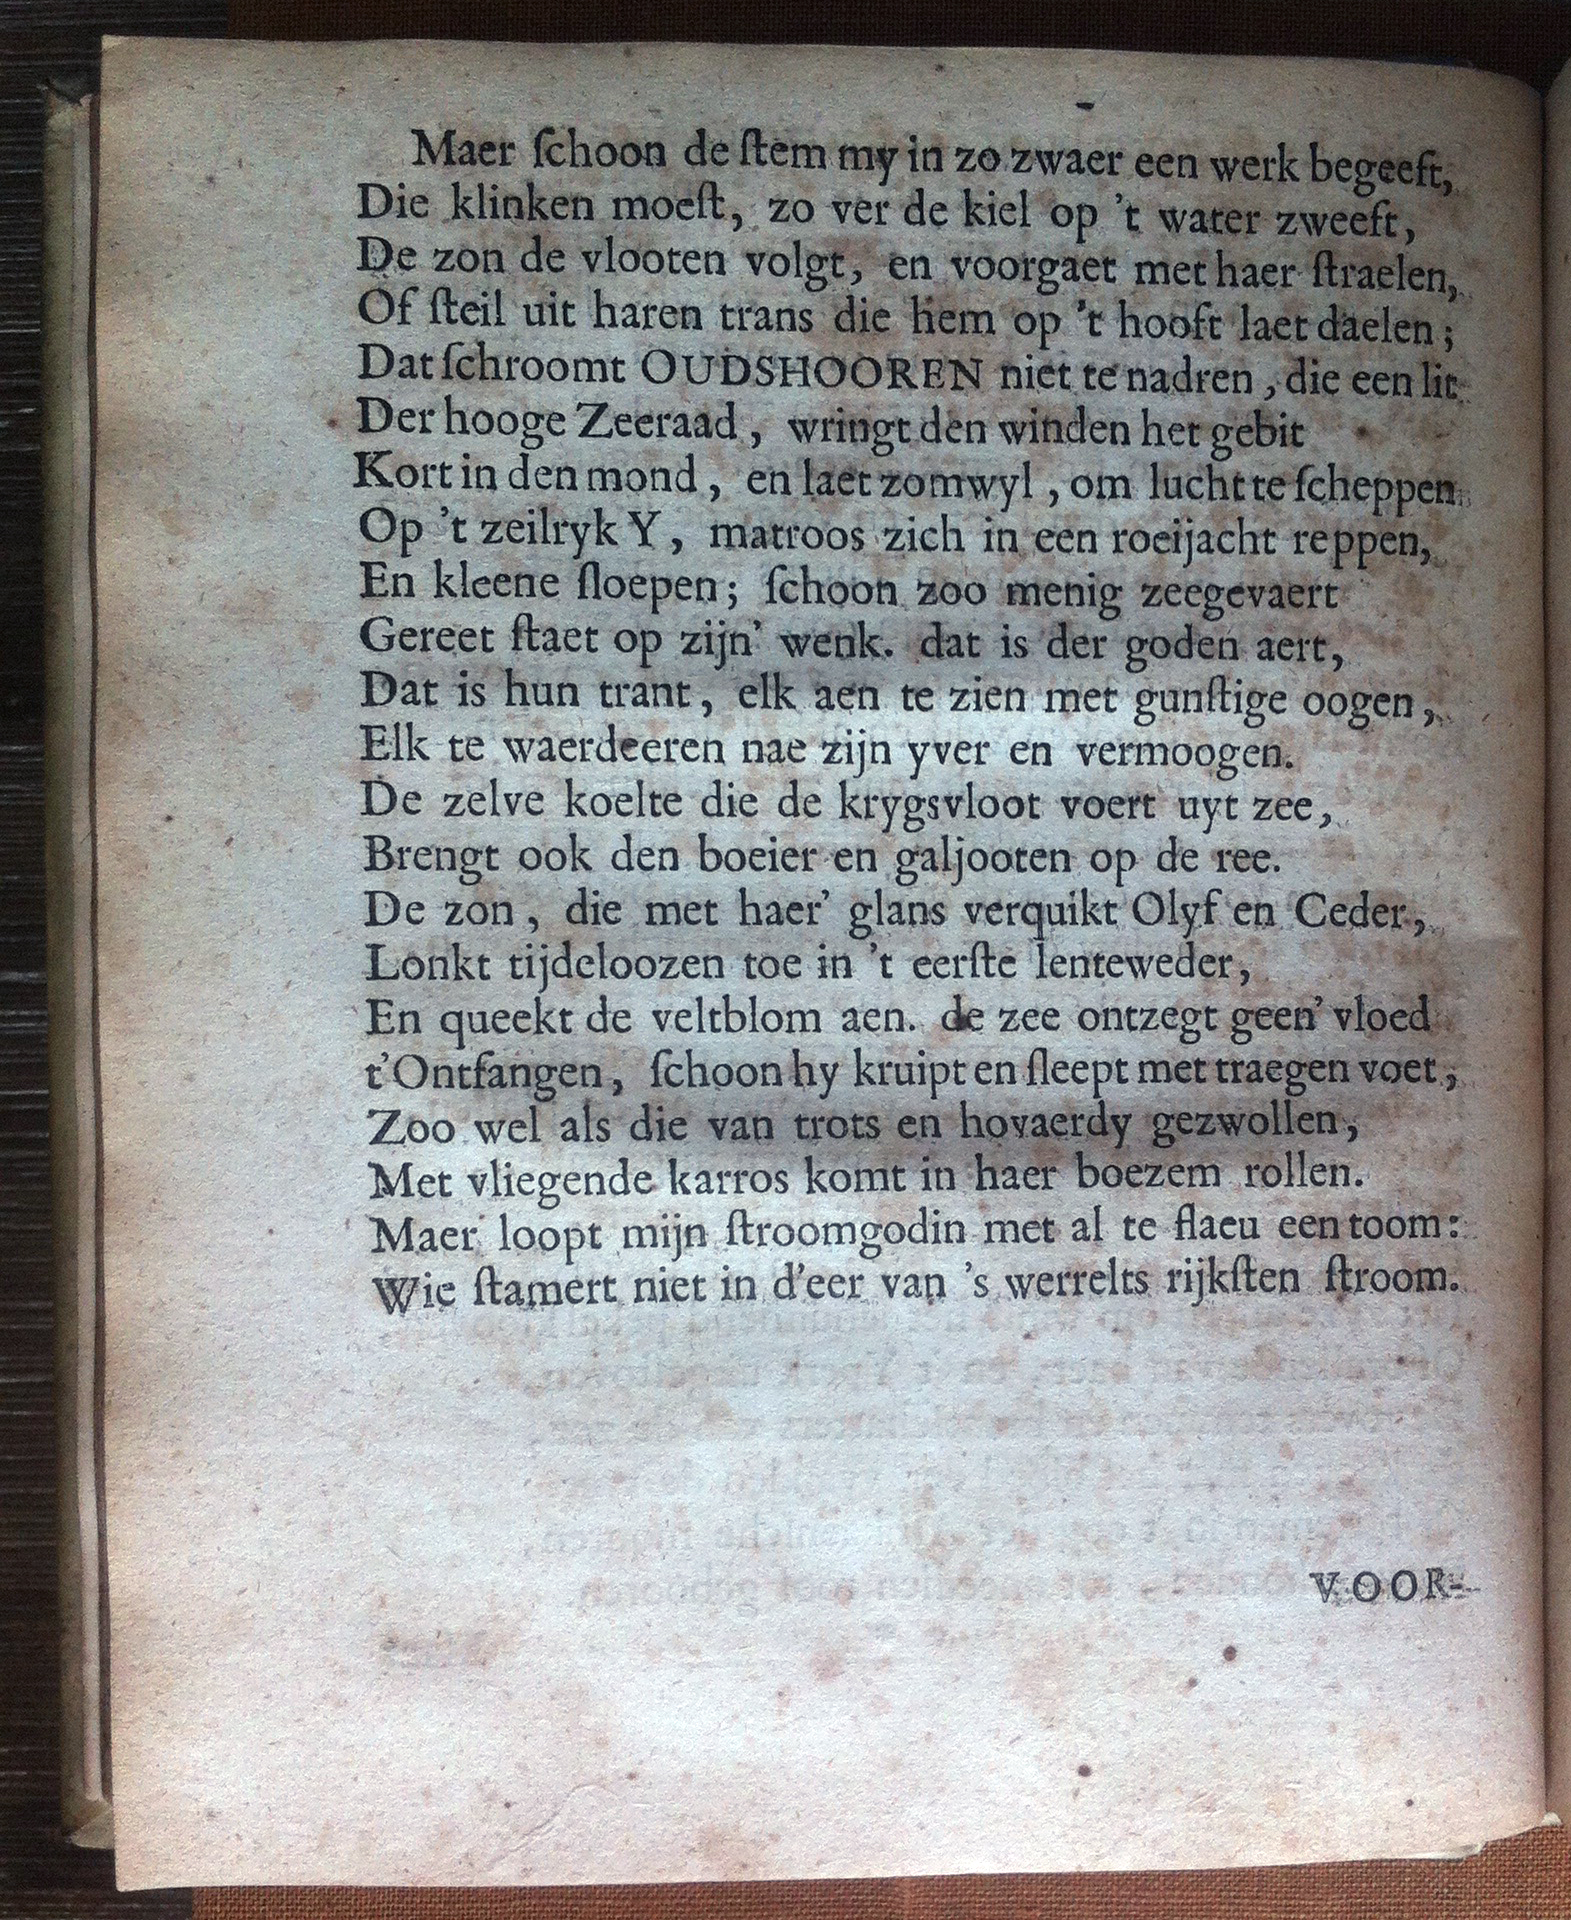 Maer ſchoon de ſtem my in zo zwaer een werk begeeft,
Die klinken moeſt, zo ver de kiel op 't water zweeft,
De zon de vlooten volgt, en voorgaet met haer ſtraelen,
Of ſteil uit haren trans die hem op 't hooft laet daelen;
Dat ſchroomt OUDSHOOREN niet te nadren, die een lit
Der hooge Zeeraad, wringt den winden het gebit
Kort in den mond, en laet zomwyl, om lucht te ſcheppen
Op 't zeilryk Y, matroos zich in een roeijacht reppen,
En kleene ſloepen; ſchoon zoo menig zeegevaert
Gereet ſtaet op zijn' wenk. dat is der goden aert,
Dat is hun trant, elk aen te zien met gunſtige oogen,
Elk te waerdeeren nae zijn yver en vermoogen.
De zelve koelte die de krygsvloot voert uyt zee,
Brengt ook den boeier en galjooten op de ree.
De zon, die met haer' glans verquikt Olyf en Ceder,
Lonkt tijdeloozen toe in 't eerſte lenteweder,
En queekt de veltblom aen. de zee ontzegt geen' vloed
t'Ontfangen, ſchoon hy kruipt en ſleept met traegen voet,
Zoo wel als die van trots en hovaerdy gezwollen,
Met vliegende karros komt in haer boezem rollen.
Maer loopt mijn ſtroomgodin met al te flaeu een toom:
Wie ſtamert niet in d'eer van 's werrelts rijkſten ſtroom.
VOOR-